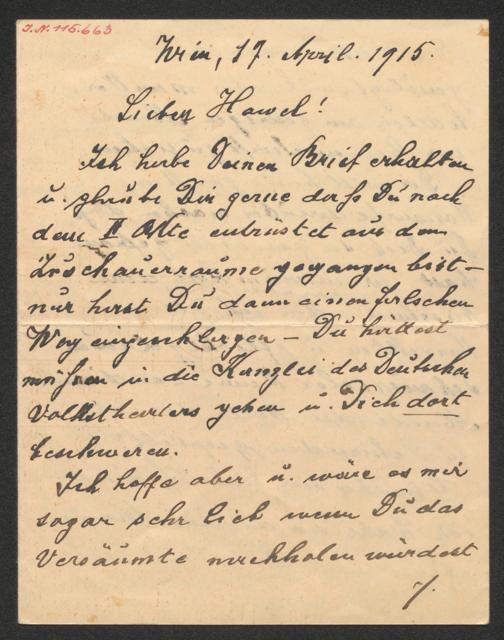 I.N. 115.663
Wien, 17. April. 1915.
Lieber Hawel!
Ich habe Deinen Brief erhalten
u. glaube Dir gerne dass Du nach
dem II Akte entrüstet aus dem
Zuschauerraume gegangen bist –
nur hast Du dann einen falschen
Weg eingeschlagen – Du hättest
müssen in die Kanzlei des Deutschen
Volkstheaters gehen u. Dich dort
beschweren.
Ich hoffe aber u. wäre es mir
sogar sehr lieb wenn Du das
Versäumte nachholen würdest
./.